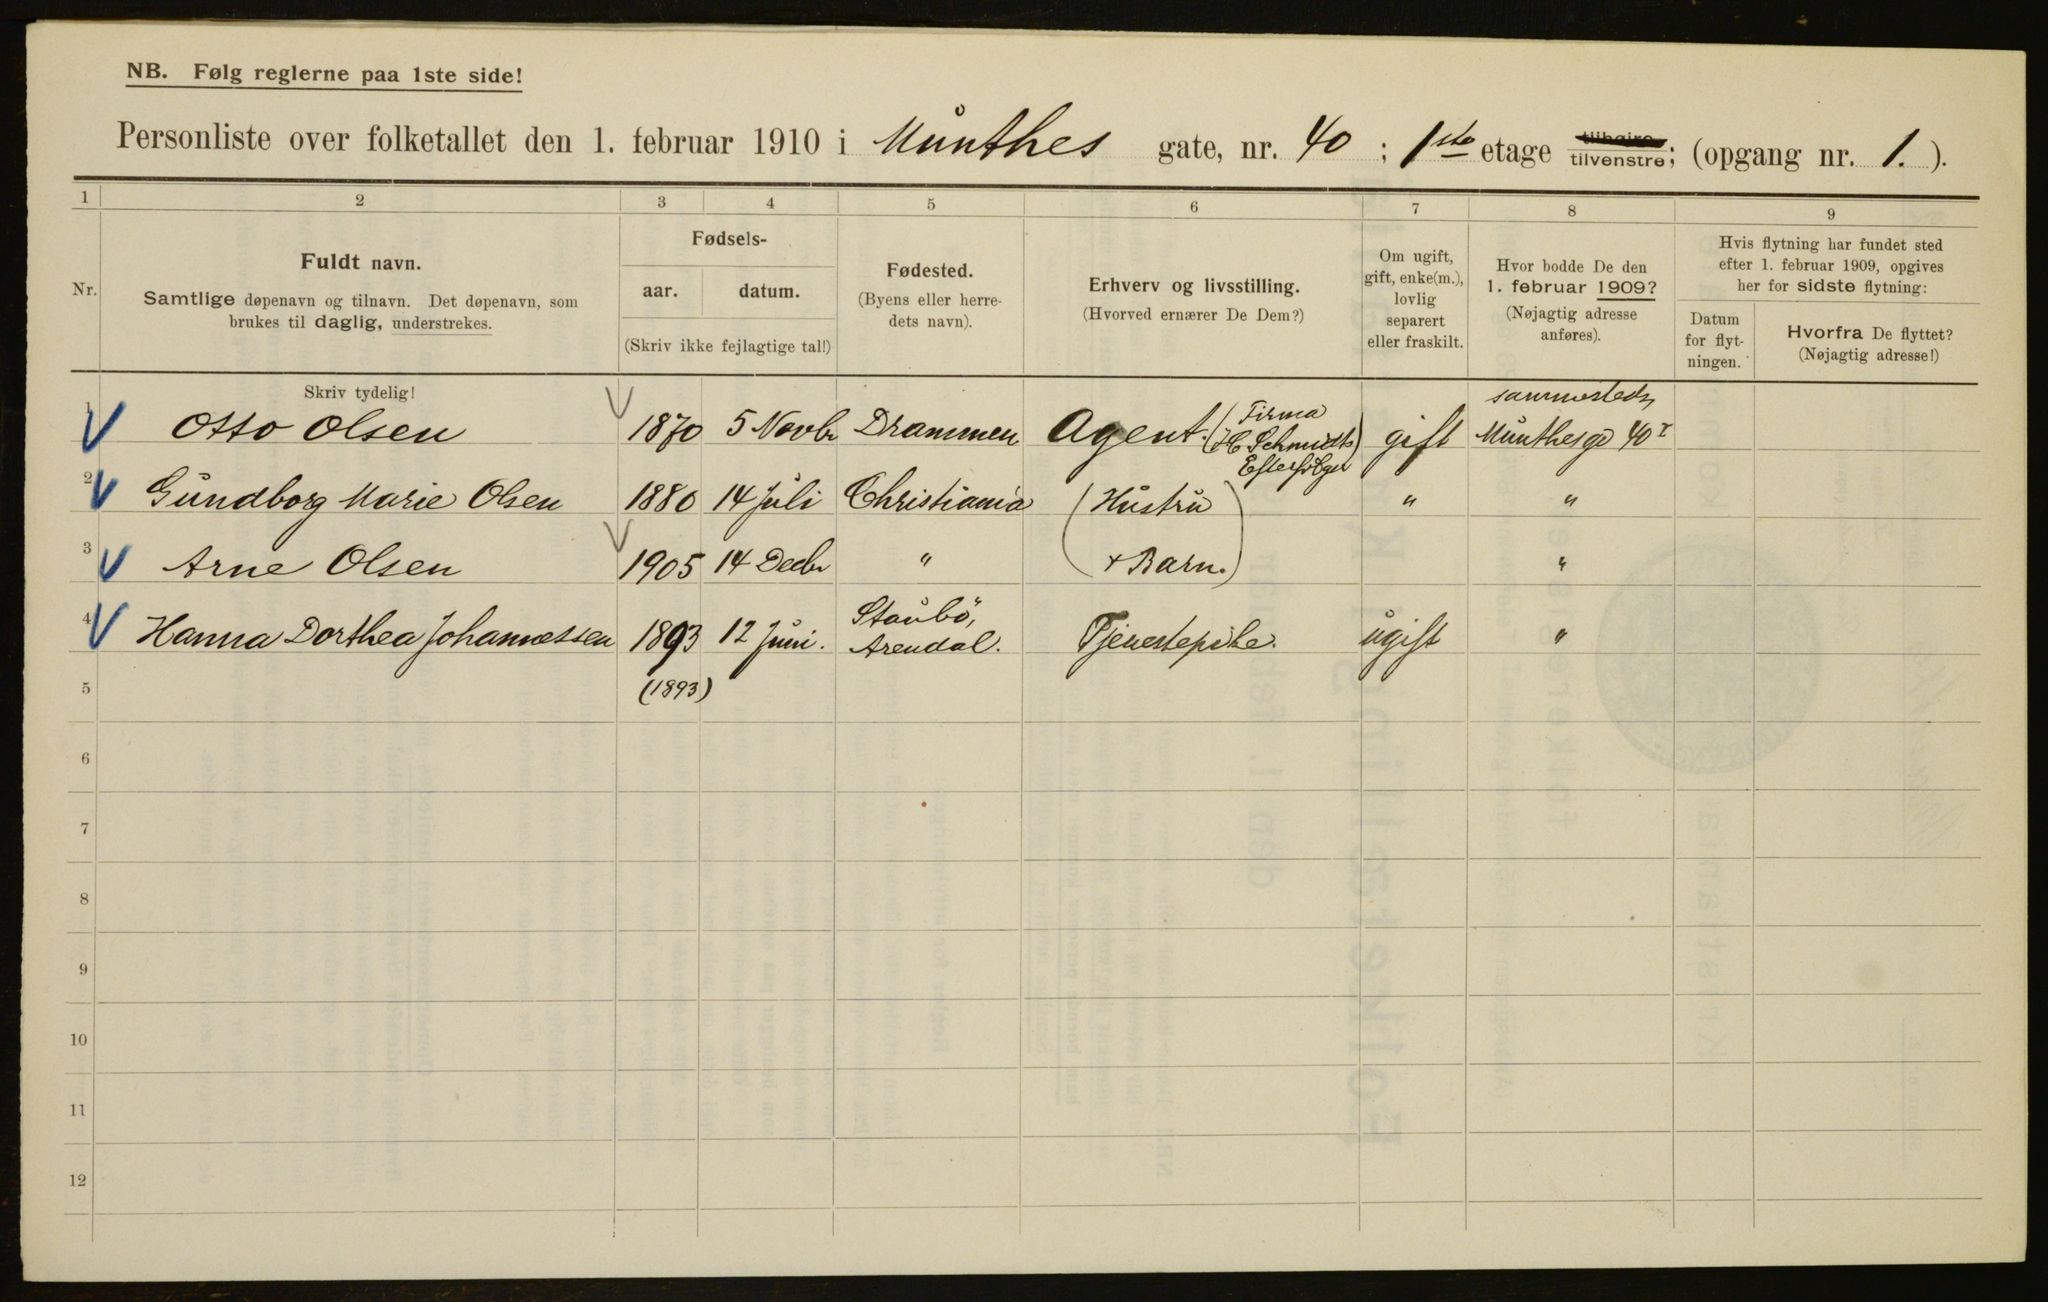 NB. Følg reglerne paa 1ste side!
Personliste over folketallet den 1. februar 1910 i Munthes gate, nr. 40 ; 1ste etage tilhøire tilvenstre; (opgang nr. 1. ).
1 2 3 4 5 6 7 8 9
Nr.
Fuldt navn.
Samtlige døpenavn og tilnavn. Det døpenavn, som
brukes til daglig, understrekes.
Fødsels-
aar. datum.
(Skriv ikke fejlagtige tal!)
Fødested.
(Byens eller herre-
dets navn).
Erhverv og livsstilling.
(Hvorved ernærer De Dem?)
Om ugift,
gift, enke(m.),
lovlig
separert
eller fraskilt.
Hvor bodde De den
1. februar 1909?
(Nøjagtig adresse
anføres).
Hvis flytning har fundet sted
efter 1. februar 1909, opgives
her for sidste flytning:
Datum
for flyt-
ningen.
Hvorfra De flyttet?
(Nøjagtig adresse!)
Skriv tydelig!
1 Otto Olsen 1870 5 Novbr Drammen Agent. (Firma H C Schmidts Efterfølger) gift sammesteds, Munthesgd 40 I
2 Gundborg Marie Olsen 1880 14 Juli Christiania (Hustru " "
3 Arne Olsen 1905 14 Decbr " + Barn.) "
4 Hanna Dorthea Johannessen 1893 12 Juni. Staubö, Arendal. Tjenestepike. ugift "
5 (1893)
6
7
8
9
10
11
12